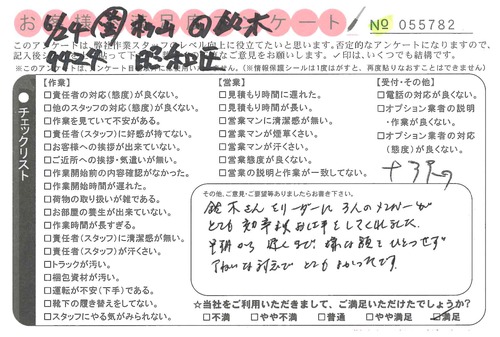 お客様満足度アンケート
No 055782
このアンケートは、弊社作業スタッフのレベル向上に役立てたいと思います。否定的なアンケートになりますので、
ご意見をお願いします。✓印は、いくつでも結構です。
(※情報保護シールは1度はがすと、再度貼りなおすことはできません)
チェックリスト
【作業】
□責任者の対応(態度)が良くない。
□他のスタッフの対応(態度)が良くない。
□作業を見ていて不安がある。
□責任者(スタッフ)に好感が持てない。
□お客様への挨拶が出来ていない。
□ご近所への挨拶・気遣いが無い。
□作業開始前の内容確認がなかった。
□作業開始時間が遅れた。
□荷物の取り扱いが雑である。
□お部屋の養生が出来ていない。
□作業時間が長すぎる。
□責任者(スタッフ)に清潔感が無い。
□責任者(スタッフ)が汗くさい。
□トラックが汚い。
□梱包資材が汚い。
□運転が不安(下手)である。
□靴下の履き替えをしてない。
□スタッフにやる気がみられない。
【営業】
□見積もり時間に遅れた。
□見積もり時間が長い。
□営業マンに清潔感が無い。
□営業マンが煙草くさい。
□営業マンが汗くさい。
□営業態度が良くない。
□営業の説明と作業が一致してない。
【受付・その他】
□電話の対応が良くない。
□オプション業者の説明
・作業が良くない。
□オプション業者の対応
(態度)が良くない。
その他、ご意見・ご要望等ありましたらお書き下さい。
鈴木さんをリーダーに3人のメンバーが
とても
仕事をしてくれました。
嫌な顔ひとつせず
とても
です。
☆当社をご利用いただきまして、ご満足いただけたでしょうか?
□不満 □やや不満 □普通 □やや満足 ☑満足